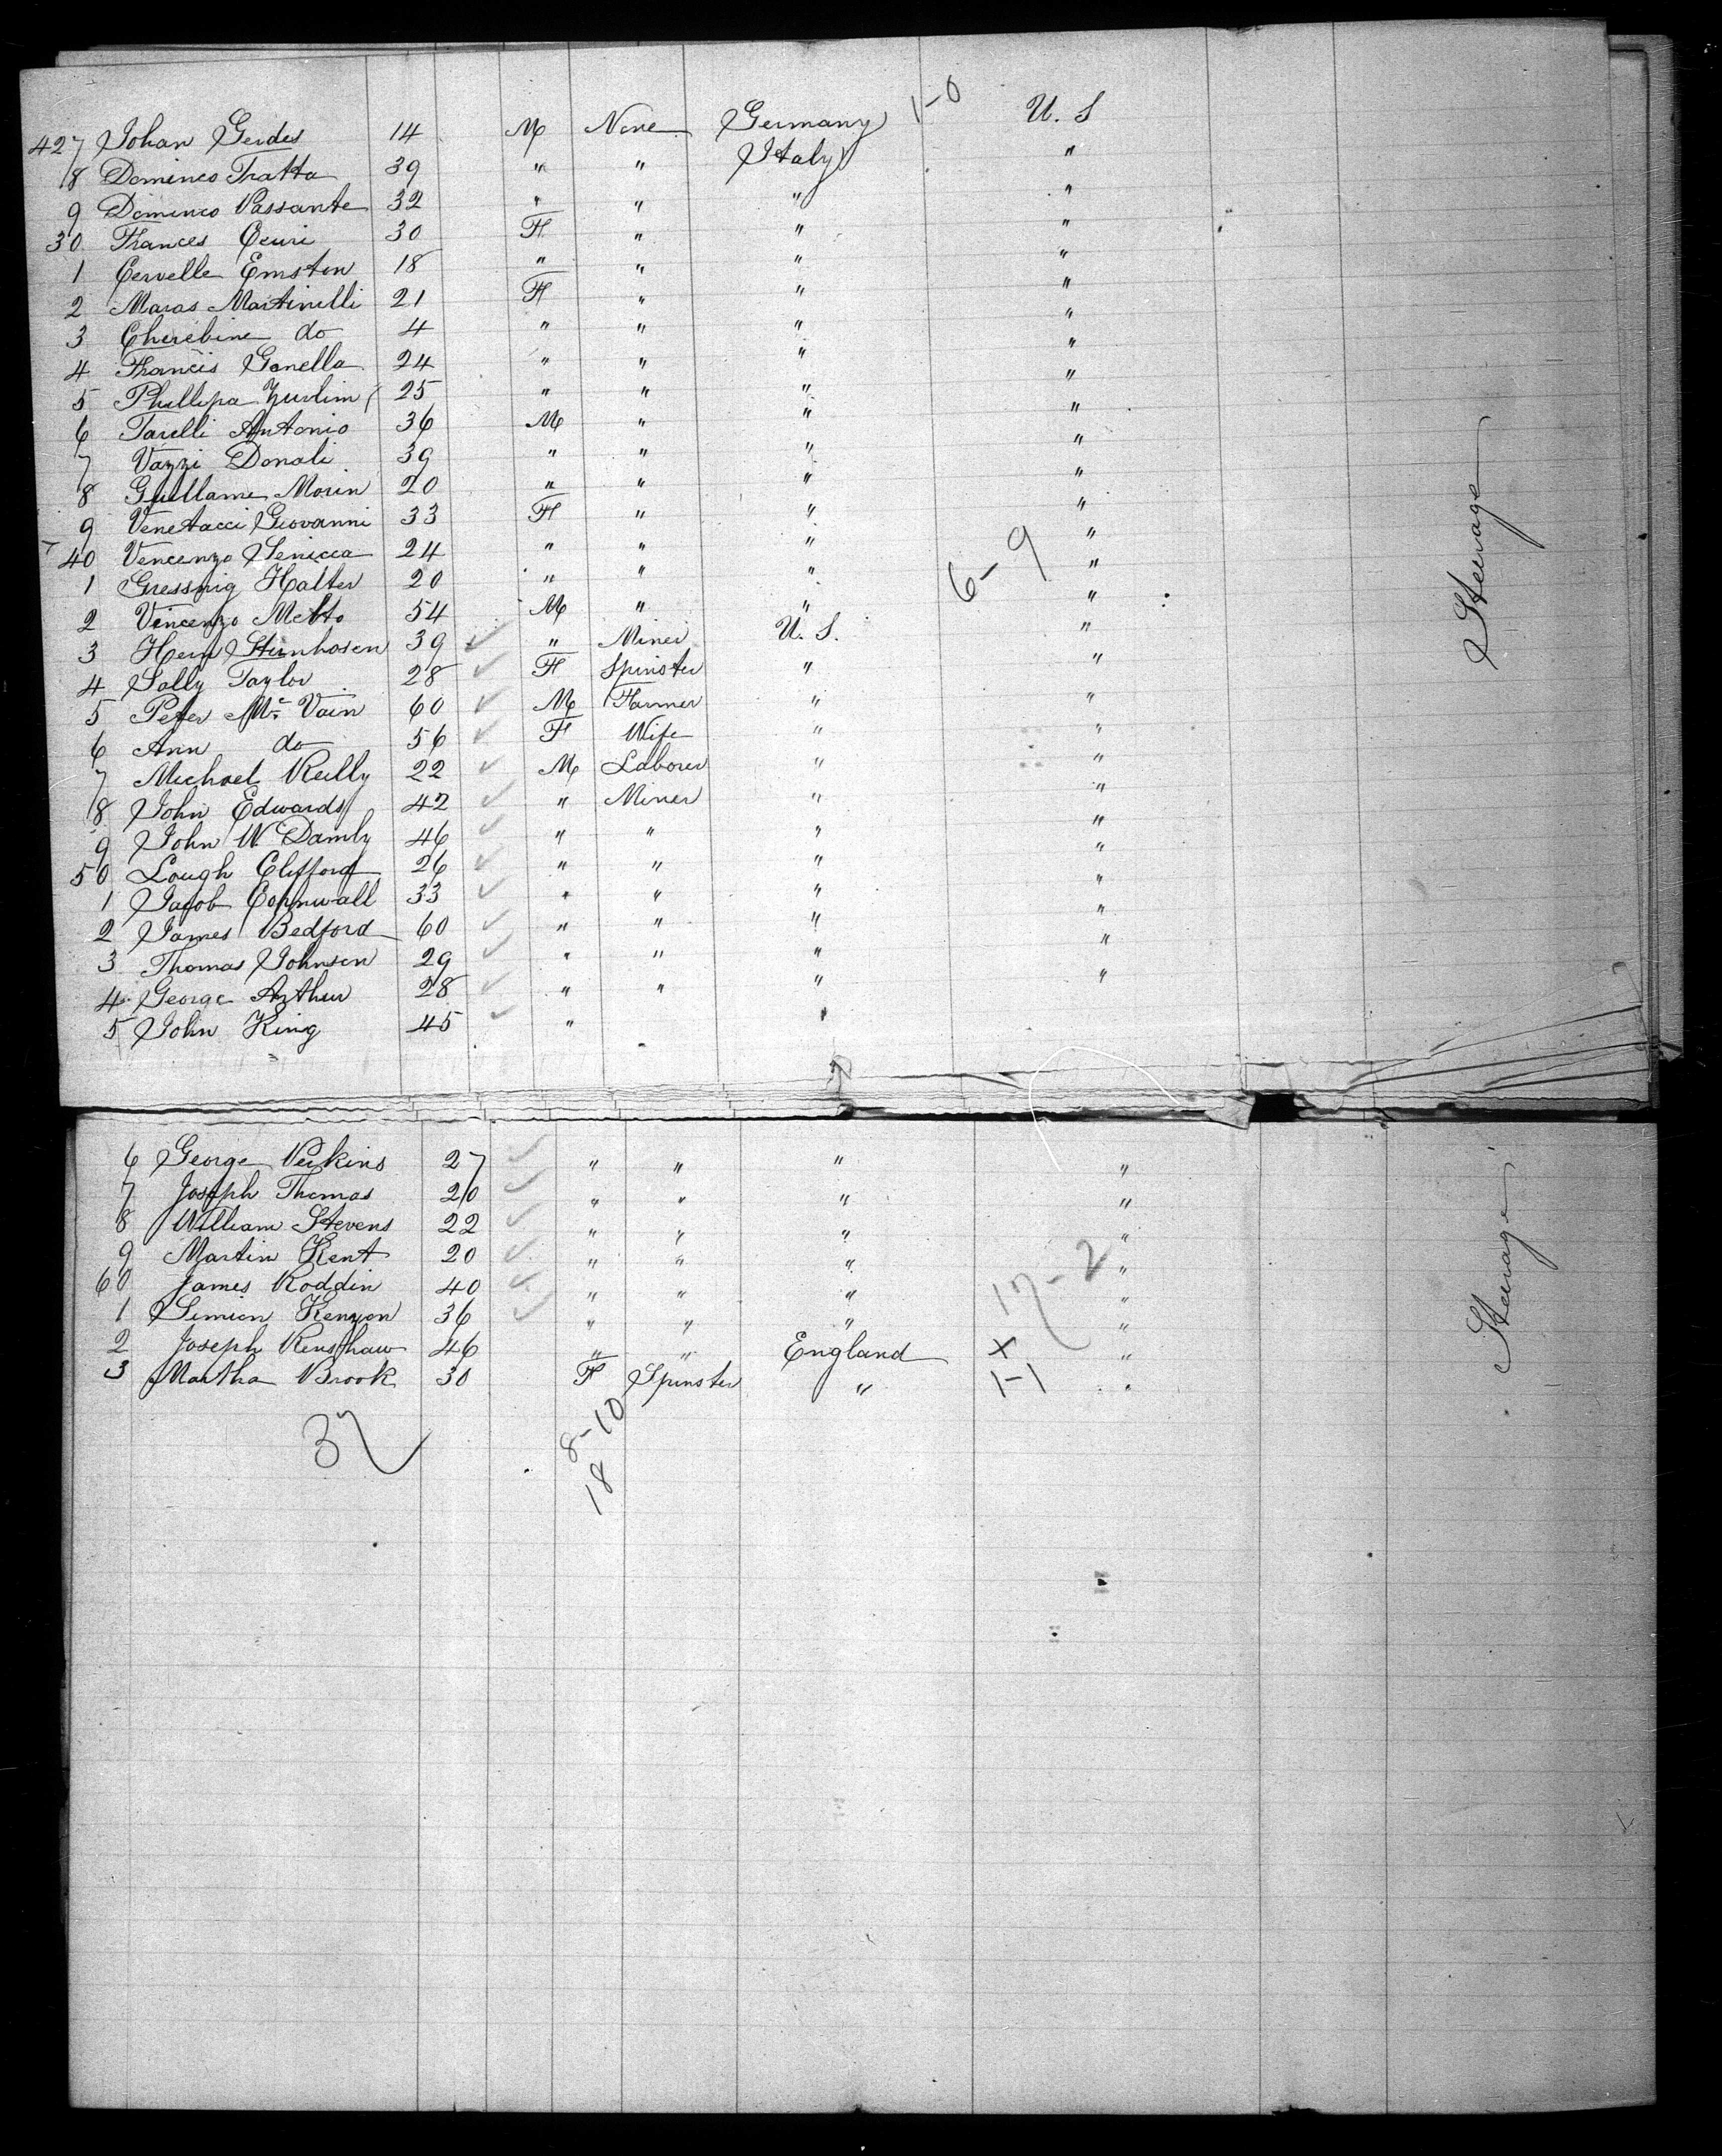 427 Johan Gerdes 14 M None Germany 1-0 U. S
8 Dominco Tratta 39 " " Italy "
9 Dominco Passante 32 " " " "
30 Frances Ceuri 30 F " " "
1 Cervelle Ernsten 18 " " " "
2 Maras Martinelli 21 F " " "
3 Cherebine do 4 " " " "
4 Francis Gonella 24 " " " "
5 Phillipa Zurlini 25 " " " "
6 Tarelli Antonio 36 M " " "
7 Vazzi Donali 39 " " " "
8 Guillame Morin 20 " " " "
9 Venetacci Giovanni 33 F " " "
40 Vencenzo Senicca 24 " " " "
1 Gressnig Halter 20 " " " 6-9 "
2 Vincenzo 54 M " " "
3 Hern Sternhosen 39 " Miner U. S. "
4 Sally Taylor 28 F Spinster " "
5 Peter Mc Vain 60 M Farmer " "
6 Ann do 56 F Wife " "
7 Michael Reilly 22 M Laborer " "
8 John Edwards 42 " Miner " "
9 John W Damly 46 " " " "
50 Lough Clifford 26 " " " "
1 Jacob Cornwall 33 " " " "
2 James Bedford 60 " " " "
3 Thomas Johnson 29 " " " "
4 George Arthur 28 " " " "
5 John King 45 " "
Steerage
6 George Perkins 27 " " " "
7 Joseph Thomas 20 " " " "
8 William Stevens 22 " " " "
9 Martin Kent 20 " " " "
60 James Roddin 40 " " " 17-2 "
1 Simion Kenyon 36 " " " "
2 Joseph Renshaw 46 " " England x "
3 Martha Brook 30 F Spinster " 1-1 "
Steerage
37
8-10
18